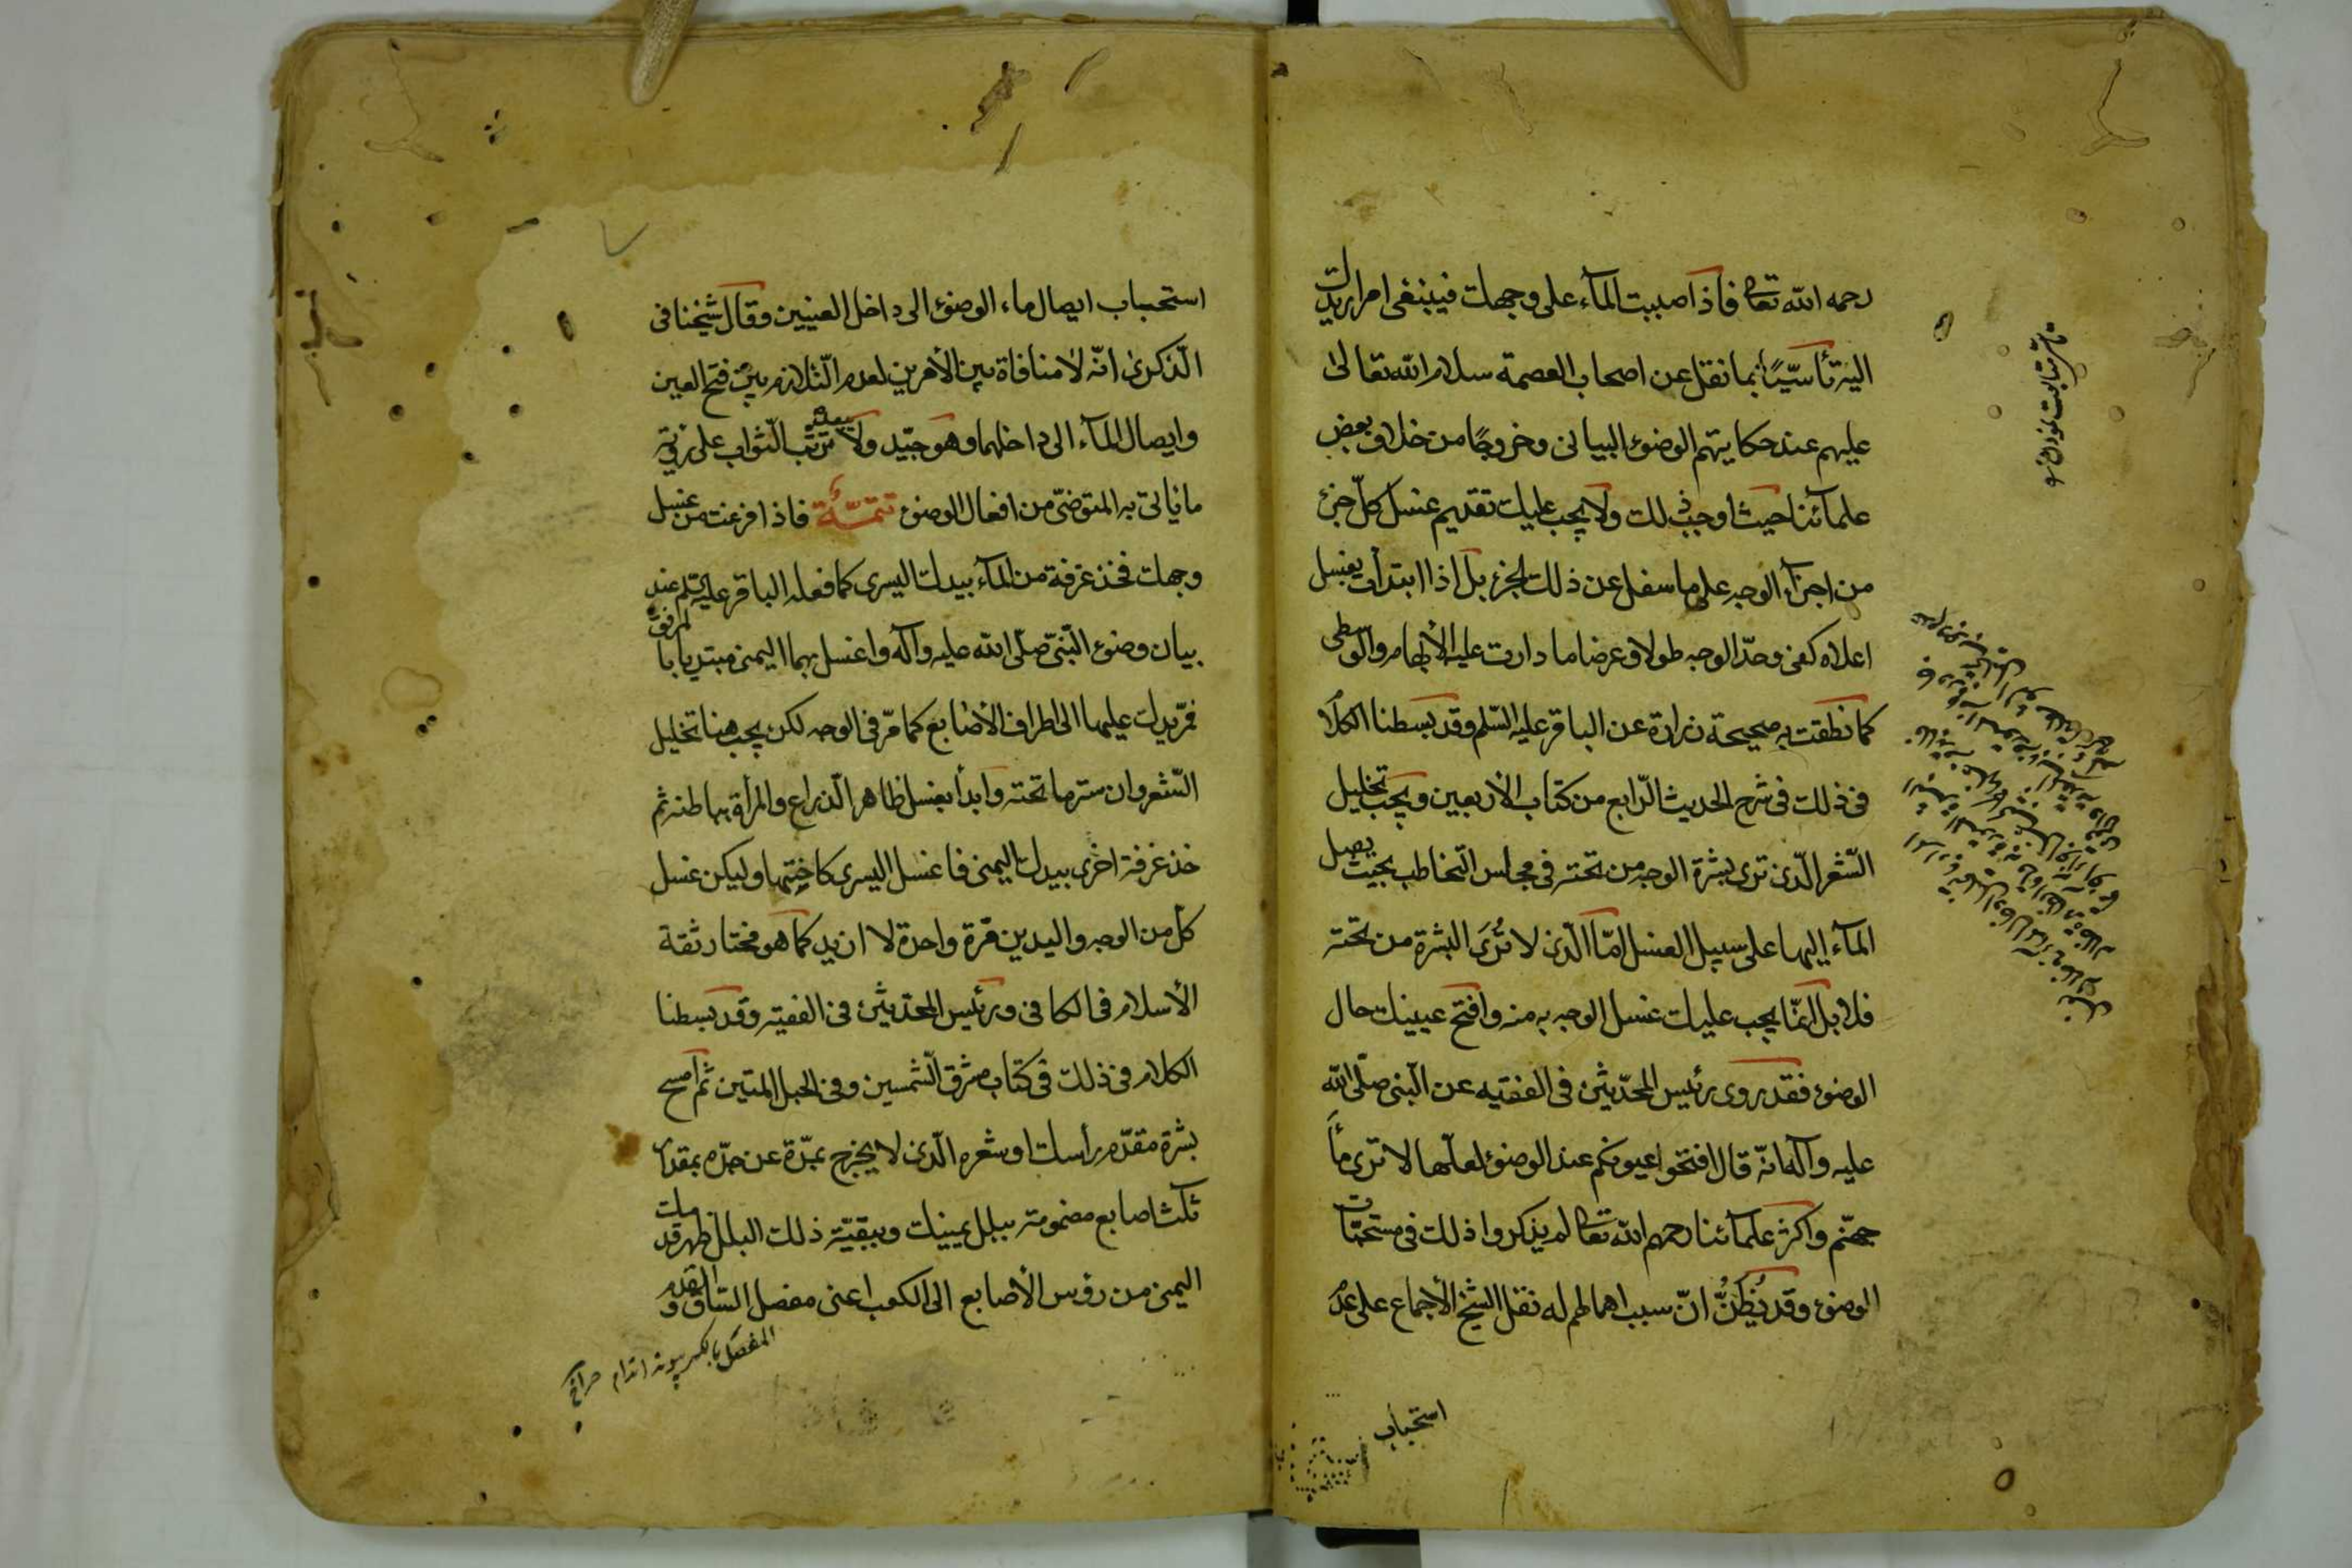 رحمه الله تعا فاذا صببت المآء على وجهك فينبغى امرار يدك
اليه تأسيّا بما نقل عن اصحاب العصمة سلام الله تعالى
عليهم عند حكايتهم الوضوء البيانى وخروجًا من خلاف بعض
علمآئنا حيث اوجب ذلك ولا يجب عليك تقديم غسل كلّ جزء
من اجزآء الوجه على ما سفل عن ذلك الجزء بل اذا ابتدأت بغسل
اعلاه كفى وحدّ الوجه طولا وعرضا ما دارت عليه الأبهام والوسطى
كما نطقت به صحيحة زرارة عن الباقر عليه السّلم وقد بسطنا الكلام
فى ذلك فى شرح الحديث الرّابع من كتاب الأربعين ويجب تخليل
الشّعر الّذى ترى بشرة الوجه من تحته فى مجالس التّخاطب بحيث يصل
المآء إليها على سبيل الغسل امّا الّذى لا تُرَى البشرة من تحته
فلا بل انمّا يجب عليك غسل الوجه به منه وافتح عينيك حال
الوضوء فقد روى رئيس المحدّثين فى الفقيه عن النّبى صلّى الله
عليه وآله انّه قال افتحوا عيونكم عند الوضوء لعلّها لا ترى نارًا
جهنّم واكثر علمآئنا رحمهم الله تعا لم يذكروا ذلك فى مستحبّات
الوضوء وقد يُظَنُّ انّ سبب اهمالهم له نقل الشيخ الأجماع على عدم
استحباب
استحباب ايصال ماء الوضوء الى داخل العينين وقال شيخنا فى
الذّكرى انّه لا منافاة بين الأمرين لعدم التّلازم بين فتح العين
وايصال المآء الى داخلهما وهو جيّد ولا يبعد ترتّب الثّواب على رؤية
ما يأتى به المتوضّى من افعال الوضوء تتمّة فاذا فرغت من غسل
وجهك فخذ غرفة من المآء بيدك اليسرى كما فعله الباقر عليه السلم عند
بيان وضوء النّبىّ صلّى الله عليه وآله واغسل بهما اليمنى مبتديا بالمرفق
فمرّ يدك عليها الى اطراف الأصابع كما مرّ فى الوجه لكن يجب هنا تخليل
الشّعر وان ستر ما تحته وابدأ بغسل ظاهر الذّراع والمرأة بباطنه ثم
خذ غرفة اخرى بيدك اليمنى فاغسل اليسرى كاختها وليكن غسل
كلّ من الوجه واليدين مرّة واحدة لا ازيد كما هو مختار ثقة
الأسلام فى الكافى ورئيس المحدّثين فى الفقيه وقد بسطنا
الكلام فى ذلك فى كتاب مشرق الشّمسين وفى الحبل المتين ثم امسح
بشرة مقدّم رأسك او شعره الّذى لا يخرج بمدّة عن حدّه بمقدار
ثلث اصابع مضمومة ببلل يمينك وببقيّة ذلك البلل ظهر قدمك
اليمنى من رؤس الأصابع الى الكعب اعنى مفصل السّاق والقدم
المفصل بالكسر پيوند اندام صراح